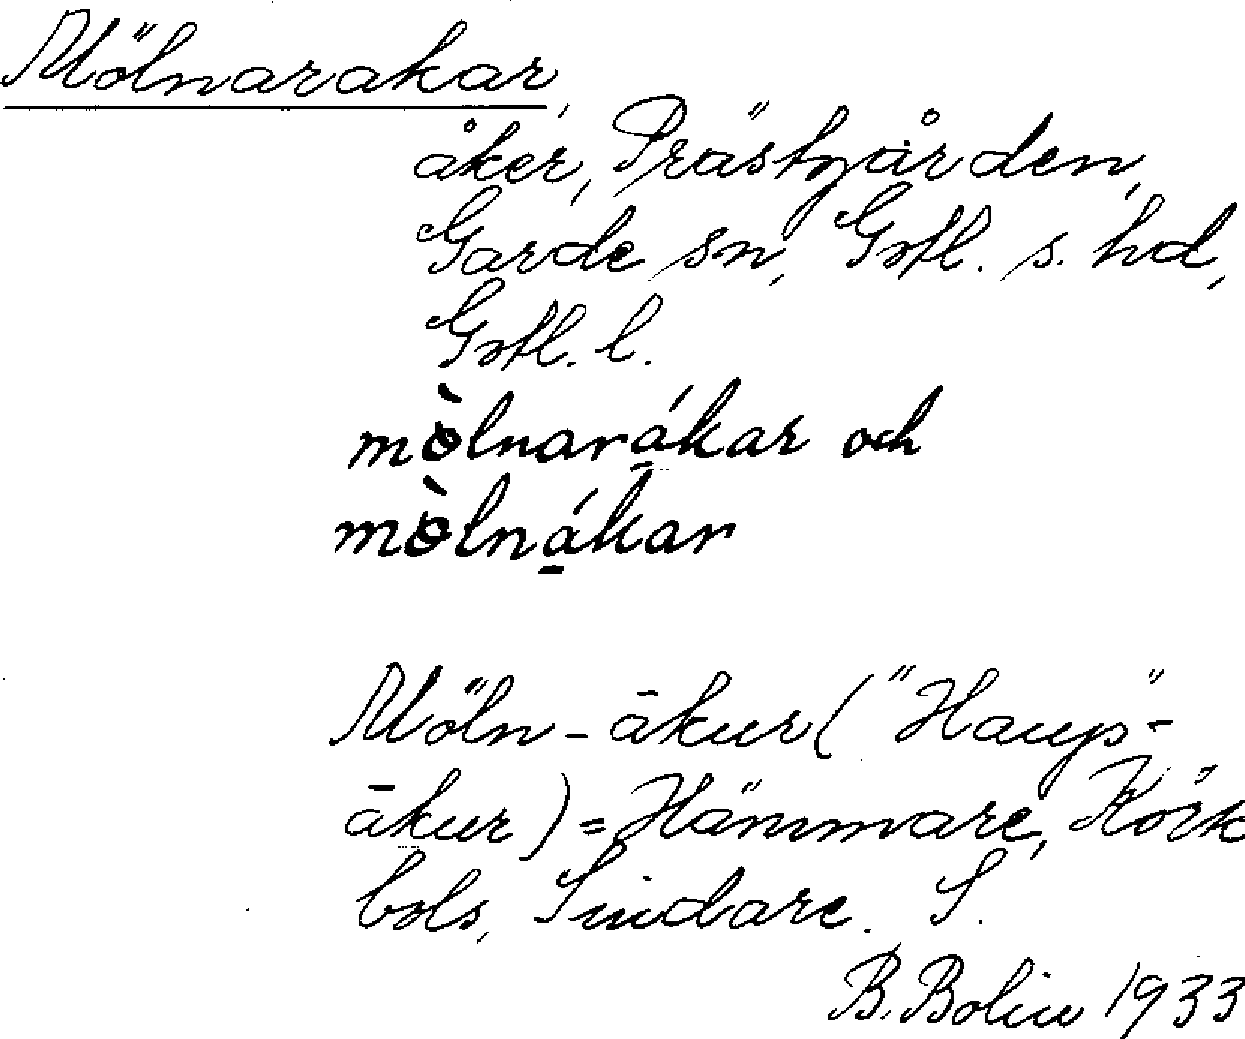 Mölnarakar,
åker, Prästgården,
Garde sn, Gotl. s. hd,
Gotl. l.
mòlnarákar och
mòlnákar
Möln-ākur ("Haugs"-
ākur) = Hämmare, Körk
bols, Sindare. S.
B. Bolin 1933